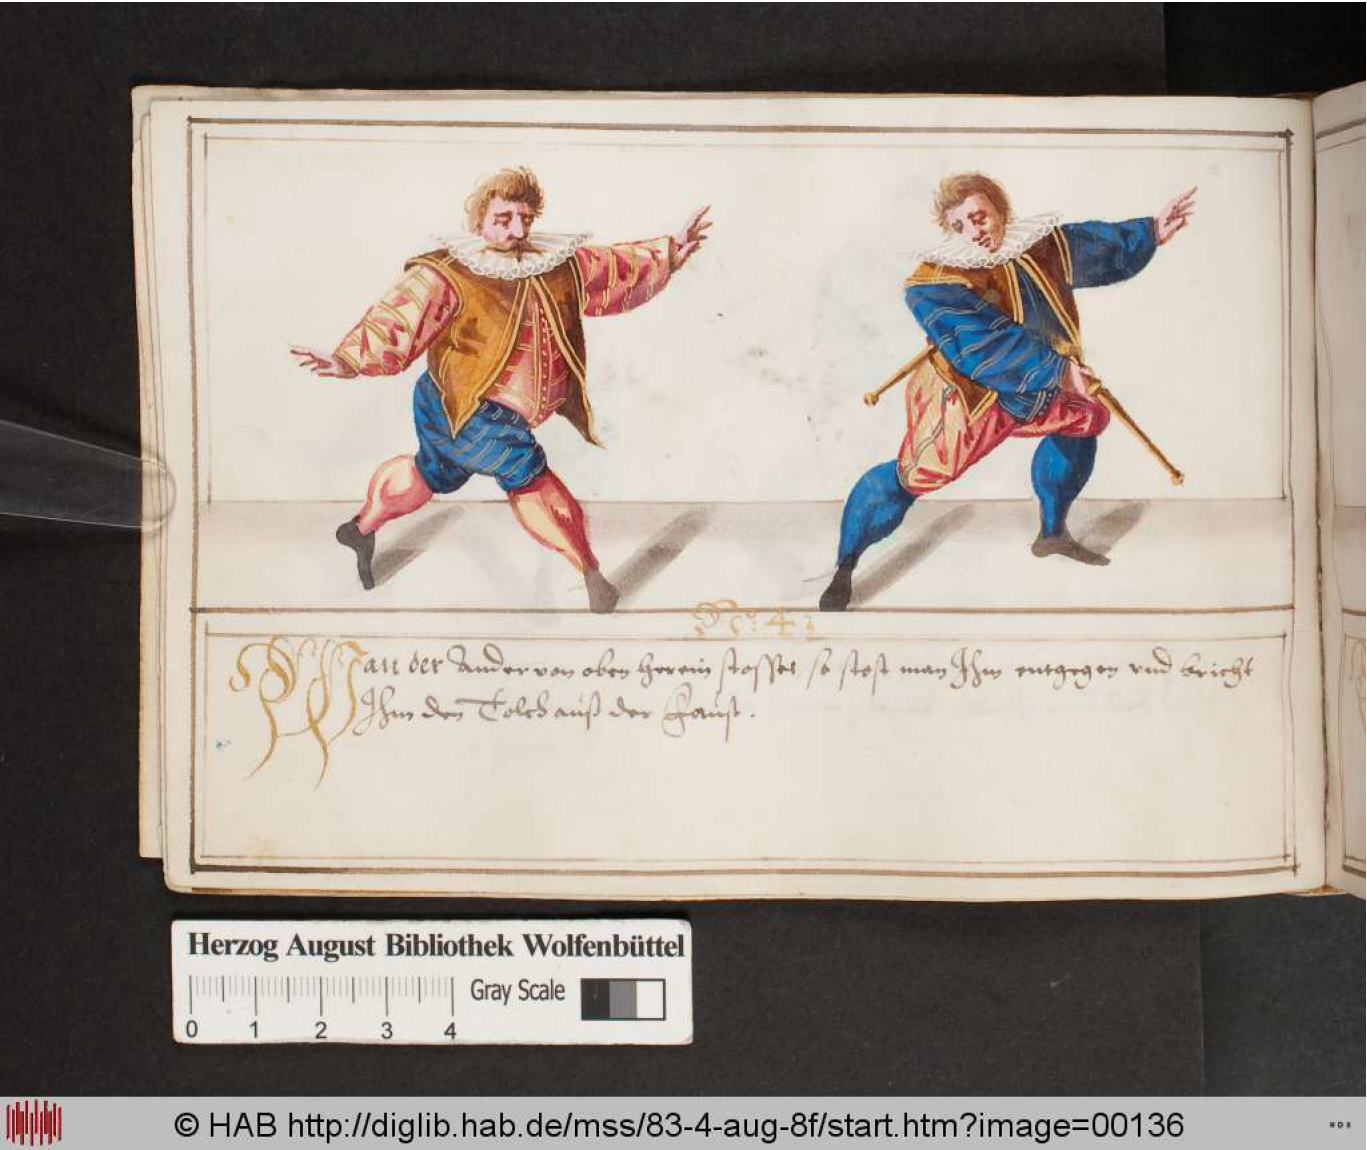 No: 43
Wan der Ander von oben herein stosset so stost man Ihm entgegen vnd bricht
Ihm den Tolch auß der Faust.
Herzog August Bibliothek Wolfenbüttel
Gray Scale
0 1 2 3 4
© HAB http://diglib.hab.de/mss/83-4-aug-8f/start.htm?image=00136